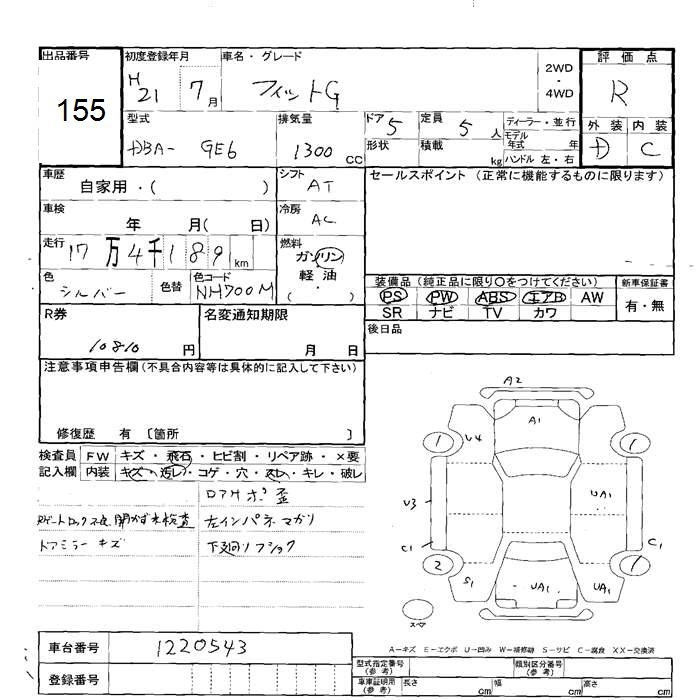 出品番号
155
初度登録年月
H 21 7月
車名・グレード
フィットG
2WD
・
4WD
評価点
R
外装 内装
D C
型式
DBA- GE6
排気量
1300 CC
ドア 5
形状
定員 5 人
積載 kg
ディーラー・並行
モデル年式 年
ハンドル 左・右
車歴
自家用・( )
シフト
AT
セールスポイント (正常に機能するものに限ります)
車検
年 月( 日)
冷房
AC
走行 17万4千189km
燃料
ガソリン
軽油
( ・ )
色
シルバー
色替
色コード
NH700M
装備品 (純正品に限り○をつけてください)
新車保証書
PS PW ABS エアB AW
SR ナビ TV カワ
有・無
R券
10810 円
名変通知期限
月 日
後日品
注意事項申告欄 (不具合内容等は具体的に記入して下さい)
修復歴 有 〔箇所 〕
検査員記入欄
FW キズ・飛石・ヒビ割・リペア跡・×要
内装 キズ・汚レ・コゲ・穴・スレ・キレ・破レ
Rゲートロック不良 開かず未検査
ドアミラー キズ
左インパネマガリ
A2
A1
U4
1
1
U3
UA1
C1
C1
2
1
S1
UA1
UA1
スペア
A−キズ E−エクボ U−凹み W−補修跡 S−サビ C−腐食 XX−交換済
車台番号 1220543
登録番号
型式指定番号(参考)
類別区分番号(参考)
車庫証明用(参考) 長さ cm 幅 cm 高さ cm